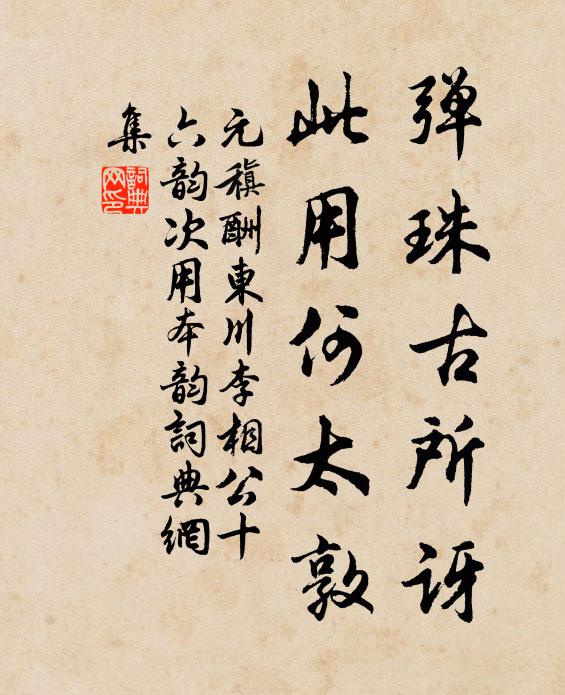 弹珠古所讶
此用何太敦
元稹酬東川李相公十
六韵次用本韵詞典網
集
詞典
网印